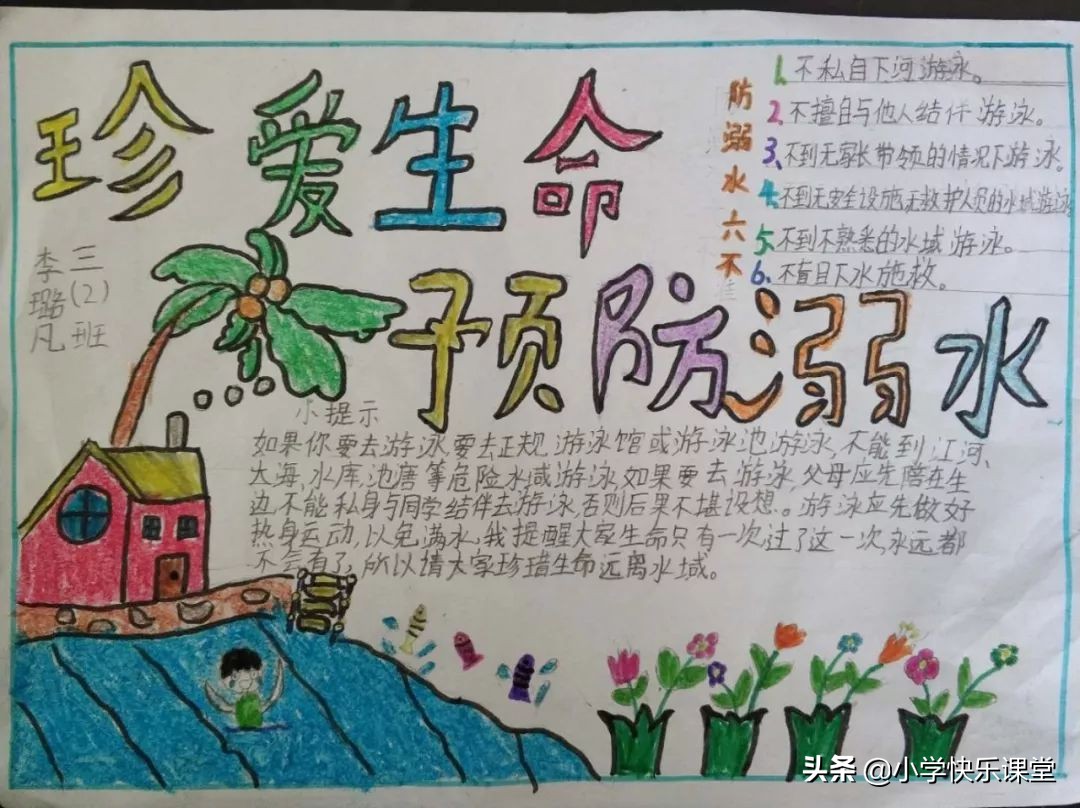 珍爱生命
预防溺水
三(2)班
李璐凡
防溺水六不
1.不私自下河游泳。
2.不擅自与他人结伴游泳。
3.不到无家长带领的情况下游泳。
4.不到无安全设施,无救护人员的水域游泳
5.不到不熟悉的水域游泳。
6.不盲目下水施救。
小提示
如果你要去游泳要去正规游泳馆或游泳池游泳,不能到江河、
大海,水库,池唐等危险水域游泳,如果要去游泳,父母应先陪在生
边,不能私身与同学结伴去游泳,否则后果不堪设想。游泳应先做好
热身运动,以免满水,我提醒大家生命只有一次过了这一次,永远都
不会有了,所以请大家珍惜生命远离水域。
头条 @小学快乐课堂